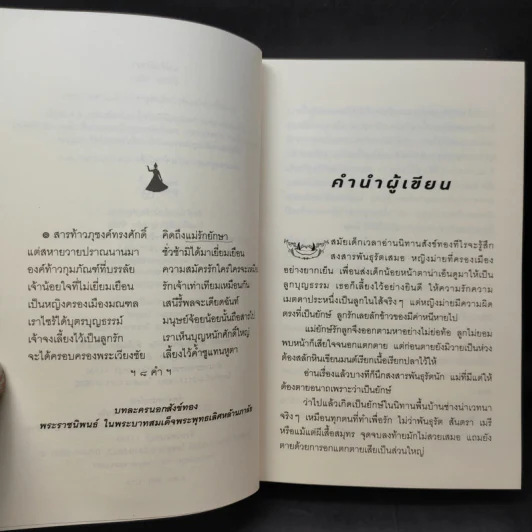 ๏ สารท้าวภุชงค์ทรงศักดิ์ คิดถึงแม่รักยักษา
แต่สหายวายปราณนานมา ชั่วช้ามิได้มาเยี่ยมเยือน
องค์ท้าวกุมภัณฑ์ที่บรรลัย ความสมัครรักใคร่ใครจะเหมือน
เจ้าน้อยใจที่ไม่เยี่ยมเยือน รักเจ้าเท่าเทียมเหมือนกัน
เป็นหญิงครองเมืองมณฑล เสนีรี้พลจะเดียดฉันท์
เราไซร้ได้บุตรบุญธรรม์ มนุษย์จ้อยน้อยนั้นถือสารไป
เจ้าจงเลี้ยงไว้เป็นลูกรัก เราเห็นบุญหนักศักดิ์ใหญ่
จะได้ครอบครองพระเวียงชัย เลี้ยงไว้ค้ำชูแทนหูตา
ฯ ๘ คำ ฯ
บทละครนอกสังข์ทอง
พระราชนิพนธ์ ในพระบาทสมเด็จพระพุทธเลิศหล้านภาลัย
คำนำผู้เขียน
สมัยเด็กเวลาอ่านนิทานสังข์ทองทีไรจะรู้สึก
สงสารพันธุรัตเสมอ หญิงม่ายที่ครองเมือง
อย่างยากเย็น เพื่อนส่งเด็กน้อยหน้าตาน่าเอ็นดูมาให้เป็น
ลูกบุญธรรม เธอก็เลี้ยงไว้อย่างยินดี ให้ความรักความ
เมตตาประหนึ่งเป็นลูกในไส้จริงๆ แต่หญิงม่ายมีความผิด
ตรงที่เป็นยักษ์ ลูกรักเลยลักข้าวของมีค่าหนีหายไป
แม่ยักษ์รักลูกจึงออกตามหาอย่างไม่ย่อท้อ ลูกไม่ยอม
พบหน้าก็เสียใจจนอกแตกตาย แต่ก่อนตายยังมีวายเป็นห่วง
ต้องสลักหินเขียนมนตร์เรียกเนื้อเรียกปลาไว้ให้
อ่านเรื่องแล้วบางทีก็นึกสงสารพันธุรัตนัก แม่ที่มีแต่ให้
ต้องตายอนาถเพราะว่าเป็นยักษ์
ว่าไปแล้วเกิดเป็นยักษ์ในนิทานพื้นบ้านช่างน่าเวทนา
จริงๆ เหมือนทุกตนที่ทำเพื่อรัก ไม่ว่าพันธุรัต สันตรา เมรี
หรือแม้แต่ผีเสื้อสมุทร จุดจบลงท้ายมักไม่สวยเสมอ แถมยัง
ตายด้วยการอกแตกตายเสียเป็นส่วนใหญ่